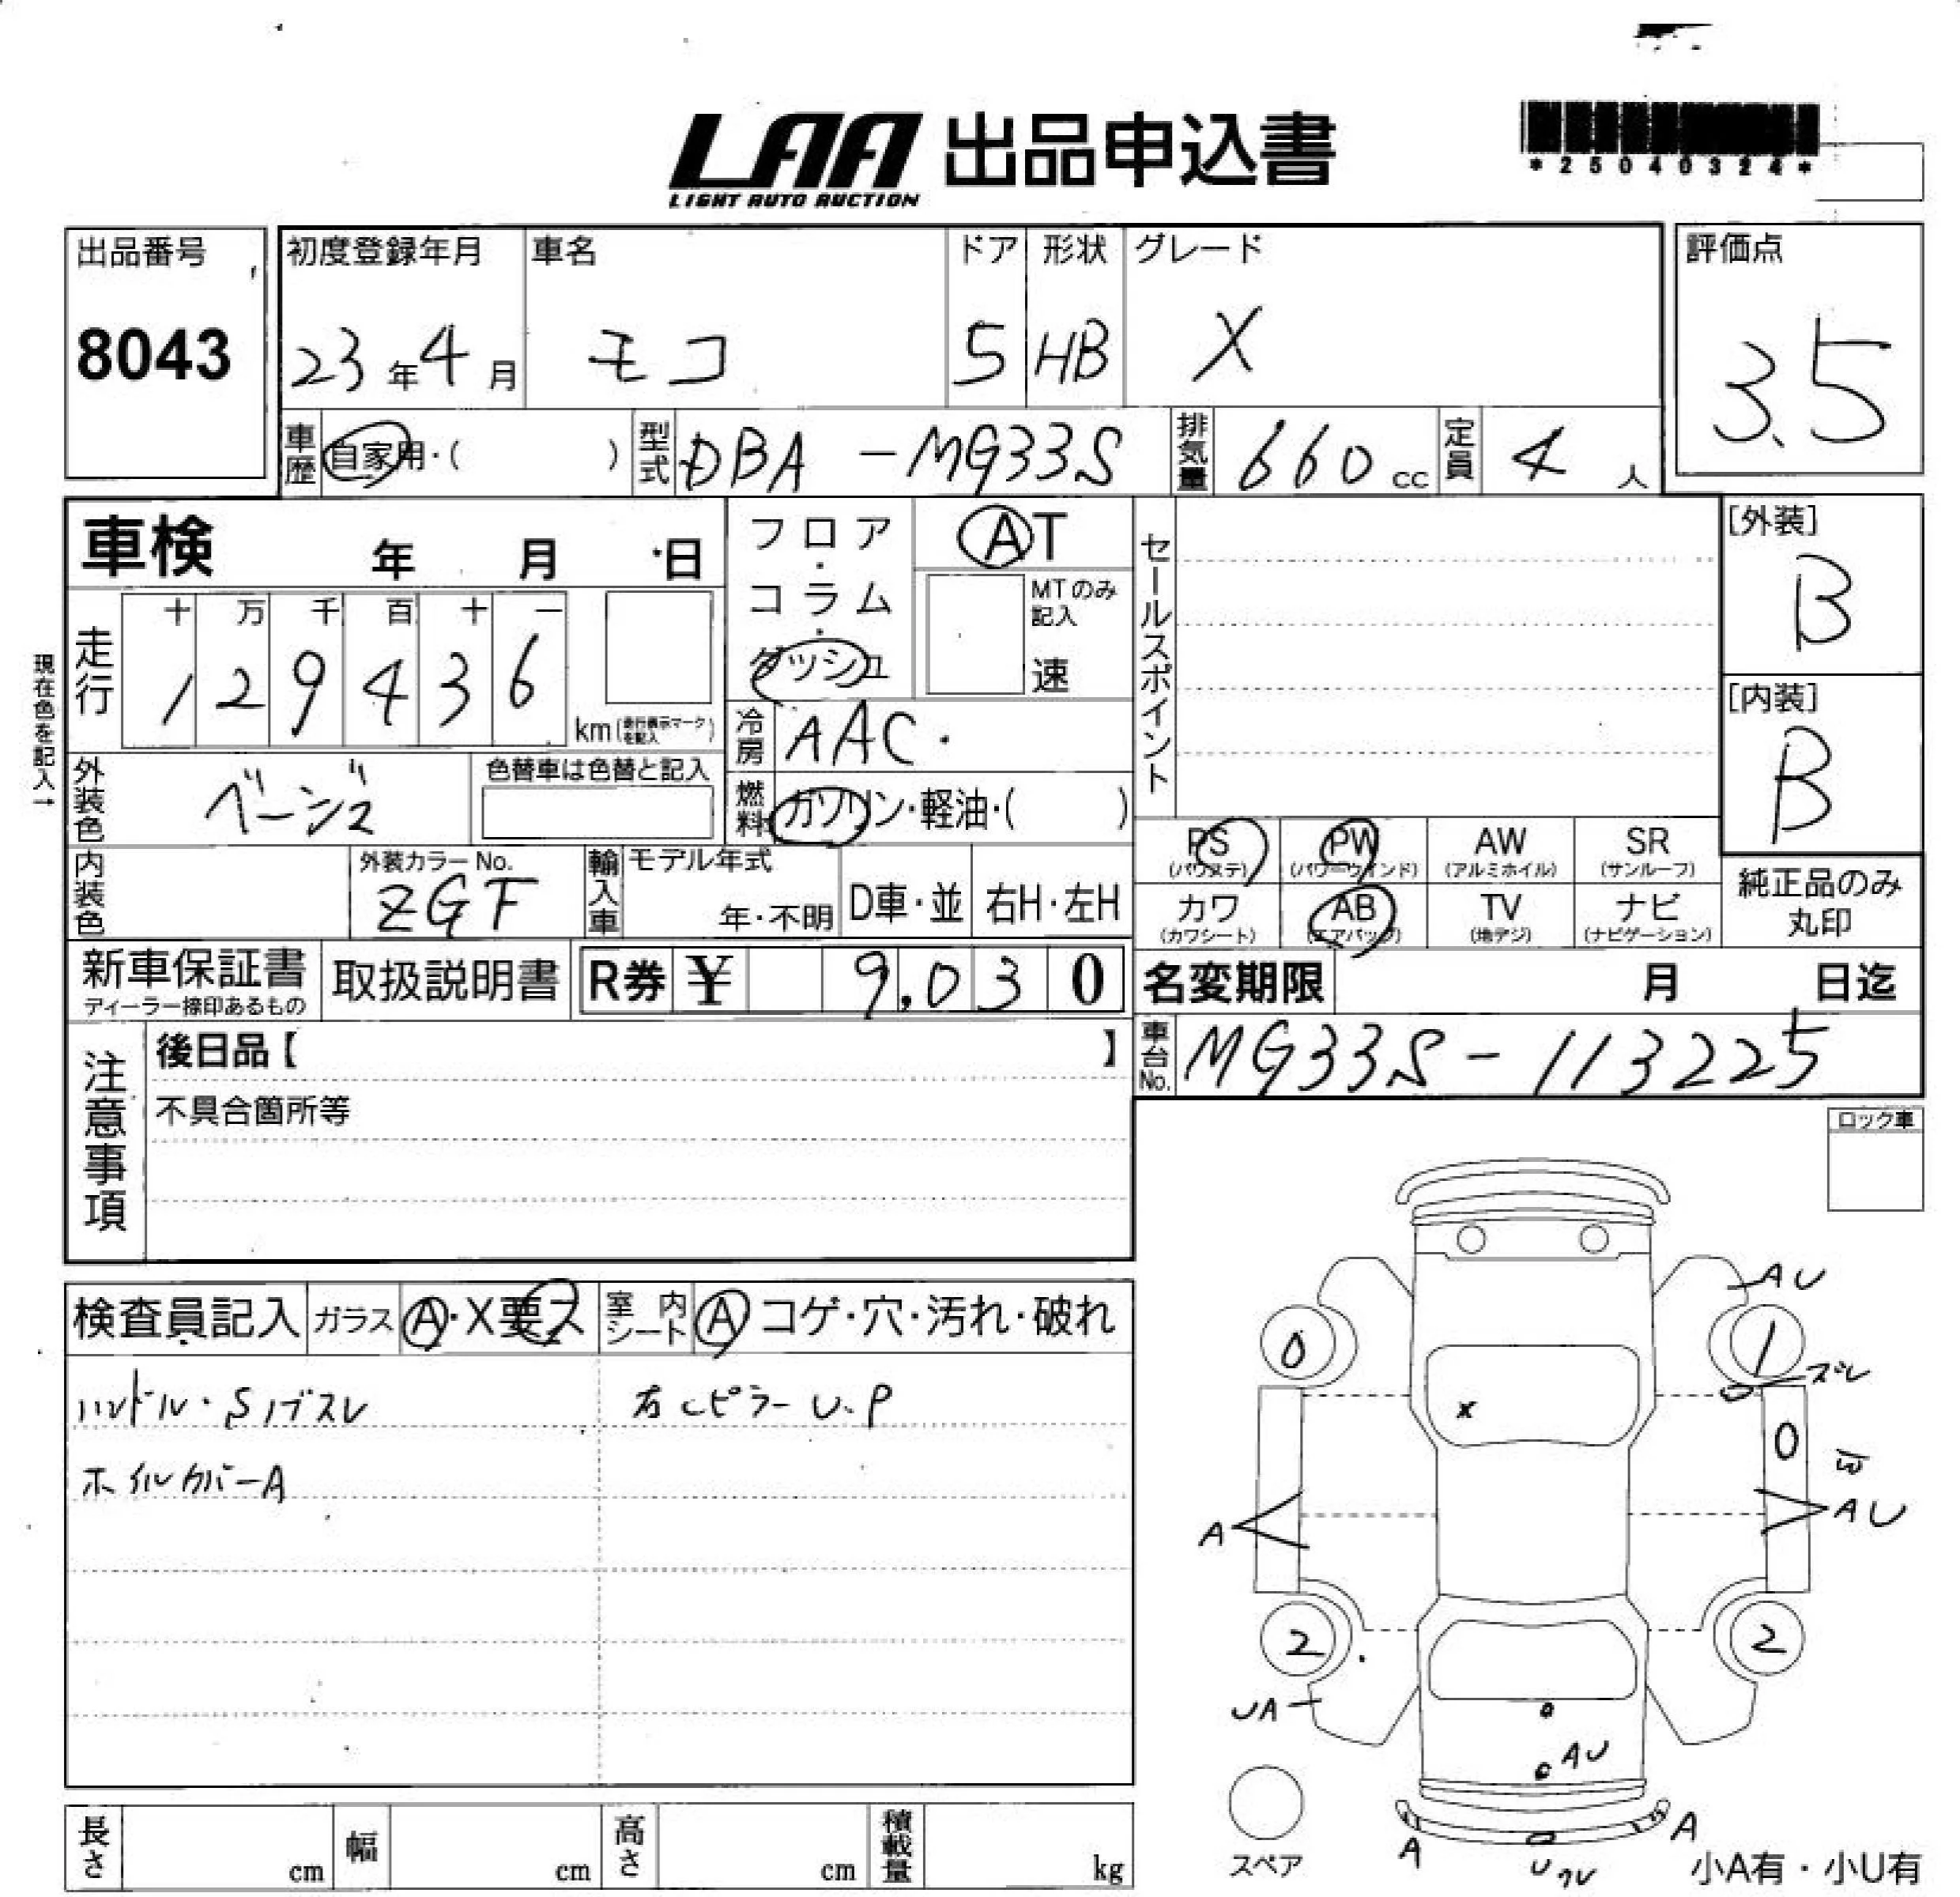 LAA 出品申込書
LIGHT AUTO AUCTION
*25040324*
出品番号
8043
初度登録年月
23年4月
車名
モコ
ドア
5
形状
HB
グレード
X
評価点
3.5
車歴
自家用・( )
型式
DBA-MG33S
排気量
660cc
定員
4人
車検 年 月 日
現在色を記入→
走行
十 万 千 百 十 一
1 2 9 4 3 6
km(走行表示マークを記入)
フロア・コラム・ダッシュ
AT
MTのみ記入
速
冷房
AAC.
燃料
ガソリン・軽油・( )
セールスポイント
[外装]
B
[内装]
B
外装色
ベージュ
色替車は色替と記入
内装色
外装カラーNo.
ZGF
輸入車
モデル年式
年・不明
D車・並
右H・左H
PS
(パワステ)
PW
(パワーウインド)
AW
(アルミホイル)
SR
(サンルーフ)
カワ
(カワシート)
AB
(エアバッグ)
TV
(地デジ)
ナビ
(ナビゲーション)
純正品のみ
丸印
新車保証書
ディーラー捺印あるもの
取扱説明書
R券 ¥ 9,030
名変期限 月 日迄
車台No.
MG33S-113225
注意事項
後日品【 】
不具合箇所等
ロック車
検査員記入
ガラス
A・X要ス
室内シート
A コゲ・穴・汚れ・破れ
ハンドル・Sノブスレ
右Cピラー U.P
ホイルカバーA
AU
0
1
ズレ
X
0
A
AU
2
2
UA
AU
A
A
スペア
小A有・小U有
長さ cm
幅 cm
高さ cm
積載量 kg